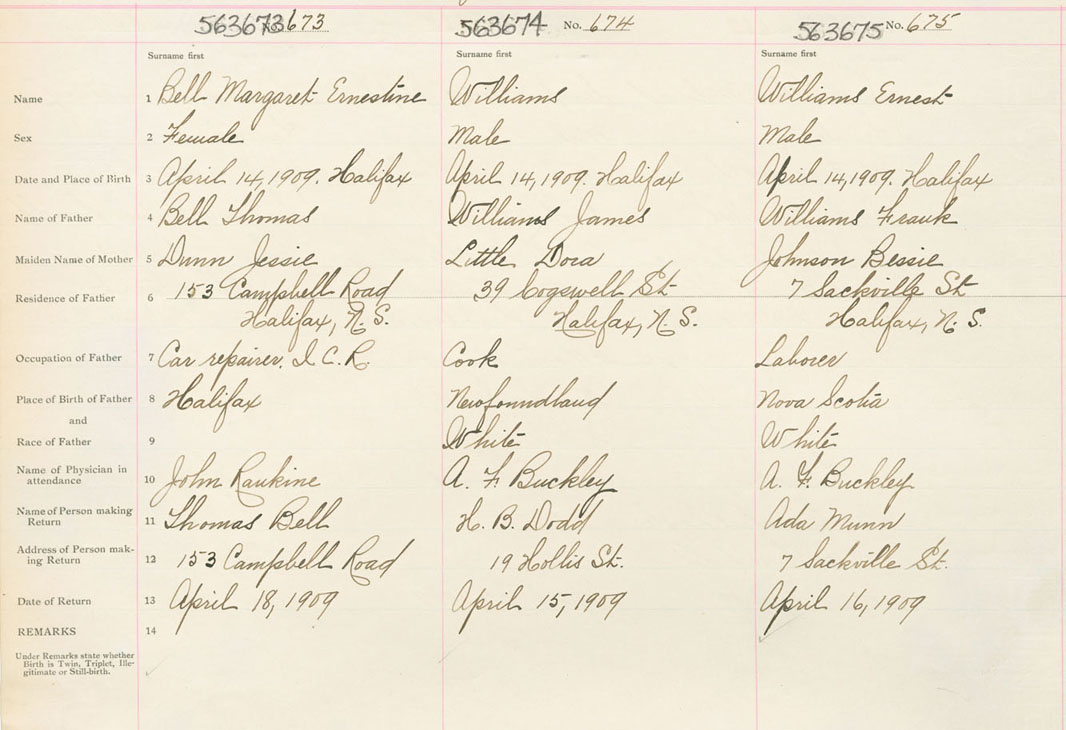 563673 673 563674 No. 674 563675 No. 675
Surname first Surname first Surname first
Name 1 Bell Margaret Ernestine Williams Williams Ernest
Sex 2 Female Male Male
Date and Place of Birth 3 April 14, 1909. Halifax April 14, 1909. Halifax April 14, 1909. Halifax
Name of Father 4 Bell Thomas Williams James Williams Frank
Maiden Name of Mother 5 Dunn Jessie Little Dora Johnson Bessie
Residence of Father 6 153 Campbell Road 39 Cogswell St. 7 Sackville St
Halifax, N. S. Halifax, N. S. Halifax, N. S.
Occupation of Father 7 Car repairer. I. C. R. Cook Laborer
Place of Birth of Father 8 Halifax Newfoundland Nova Scotia
and
Race of Father 9 White White
Name of Physician in
attendance 10 John Rankine A. F. Buckley A. F. Buckley
Name of Person making
Return 11 Thomas Bell H. B. Dodd Ada Munn
Address of Person mak-
ing Return 12 153 Campbell Road 19 Hollis St. 7 Sackville St.
Date of Return 13 April 18, 1909 April 15, 1909 April 16, 1909
REMARKS 14
Under Remarks state whether
Birth is Twin, Triplet, Ille-
gitimate or Still-birth.